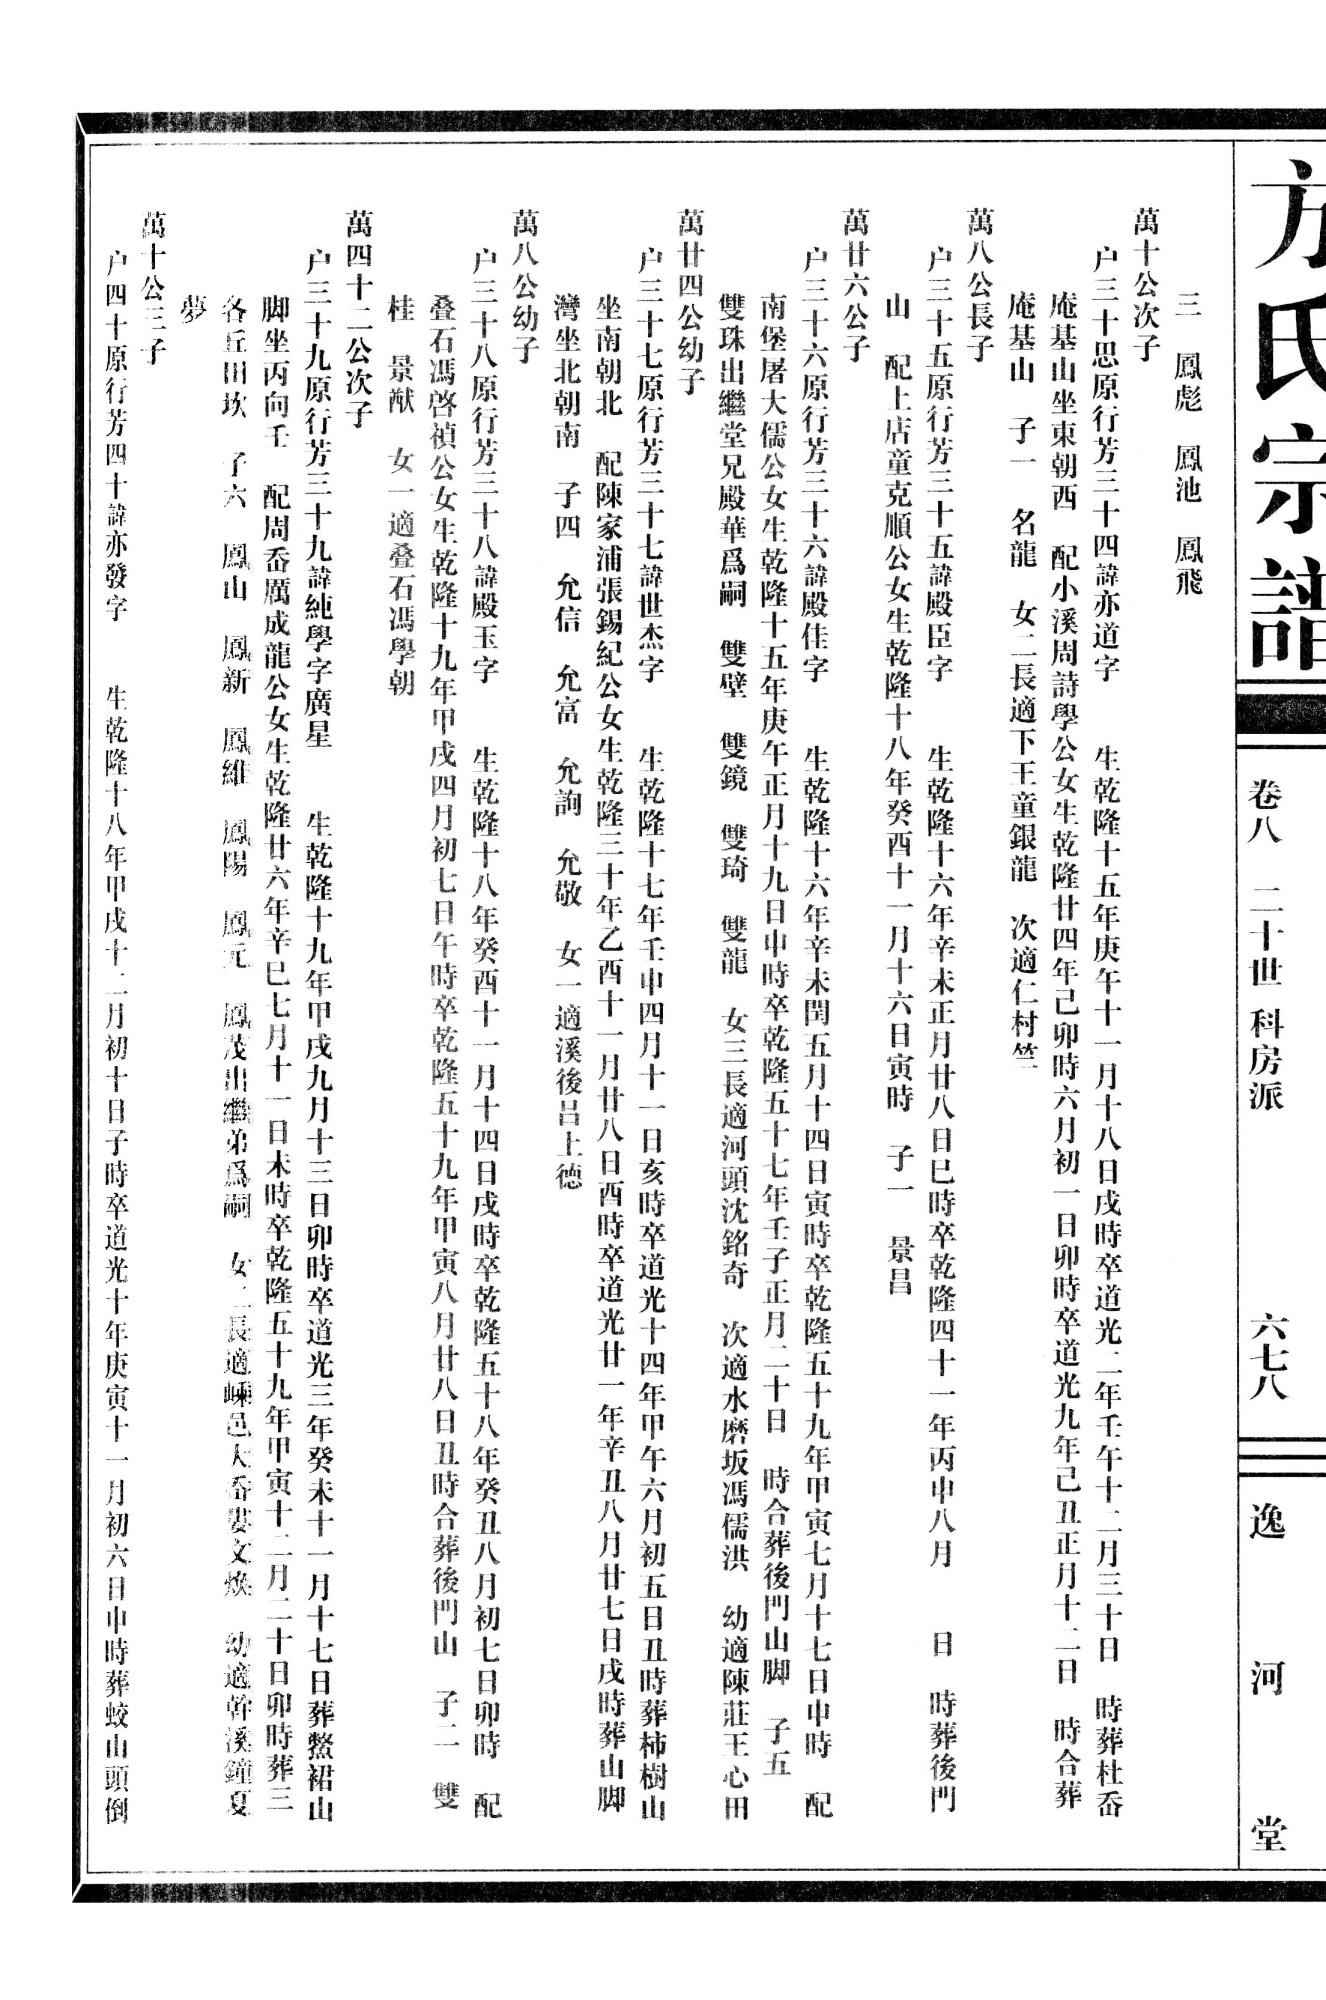 方氏宗譜
卷八 二十世 科房派
六七八
逸河堂
三 鳳彪 鳳池 鳳飛
萬十公次子
户三十思原行芳三十四諱亦道字 生乾隆十五年庚午十一月十八日戌時卒道光二年壬午十二月三十日 時葬杜岙
庵基山坐東朝西 配小溪周詩學公女生乾隆廿四年己卯時六月初一日卯時卒道光九年己丑正月十二日 時合葬
庵基山 子一 名龍 女二長適下王童銀龍 次適仁村竺
萬八公長子
户三十五原行芳三十五諱殿臣字 生乾隆十六年辛未正月廿八日巳時卒乾隆四十一年丙申八月 日 時葬後門
山 配上店童克順公女生乾隆十八年癸酉十一月十六日寅時 子一 景昌
萬廿六公子
户三十六原行芳三十六諱殿佳字 生乾隆十六年辛未閏五月十四日寅時卒乾隆五十九年甲寅七月十七日申時 配
南堡屠大儒公女生乾隆十五年庚午正月十九日申時卒乾隆五十七年壬子正月二十日 時合葬後門山脚 子五
雙珠出繼堂兄殿華爲嗣 雙璧 雙鏡 雙琦 雙龍 女三長適河頭沈銘奇 次適水磨坂馮儒洪 幼適陳莊王心田
萬廿四公幼子
户三十七原行芳三十七諱世杰字 生乾隆十七年壬申四月十一日亥時卒道光十四年甲午六月初五日丑時葬柿樹山
坐南朝北 配陳家浦張錫紀公女生乾隆三十年乙酉十一月廿八日酉時卒道光廿一年辛丑八月廿七日戌時葬山脚
灣坐北朝南 子四 允信 允富 允詢 允敬 女一適溪後吕上德
萬八公幼子
户三十八原行芳三十八諱殿玉字 生乾隆十八年癸酉十一月十四日戌時卒乾隆五十八年癸丑八月初七日卯時 配
叠石馮啓禎公女生乾隆十九年甲戌四月初七日午時卒乾隆五十九年甲寅八月廿八日丑時合葬後門山 子二 雙
桂 景猷 女一適叠石馮學朝
萬四十二公次子
户三十九原行芳三十九諱純學字廣星 生乾隆十九年甲戌九月十三日卯時卒道光三年癸未十一月十七日葬鰲裙山
脚坐丙向壬 配周岙厲成龍公女生乾隆廿六年辛巳七月十一日未時卒乾隆五十九年甲寅十二月二十日卯時葬三
各丘田坎 子六 鳳山 鳳新 鳳維 鳳陽 鳳元 鳳茂出繼弟爲嗣 女二長適嵊邑大岙婁文焕 幼適幹溪鐘夏
夢
萬十公三子
户四十原行芳四十諱亦發字 生乾隆十八年甲戌十二月初十日子時卒道光十年庚寅十一月初六日申時葬蛟山頭倒